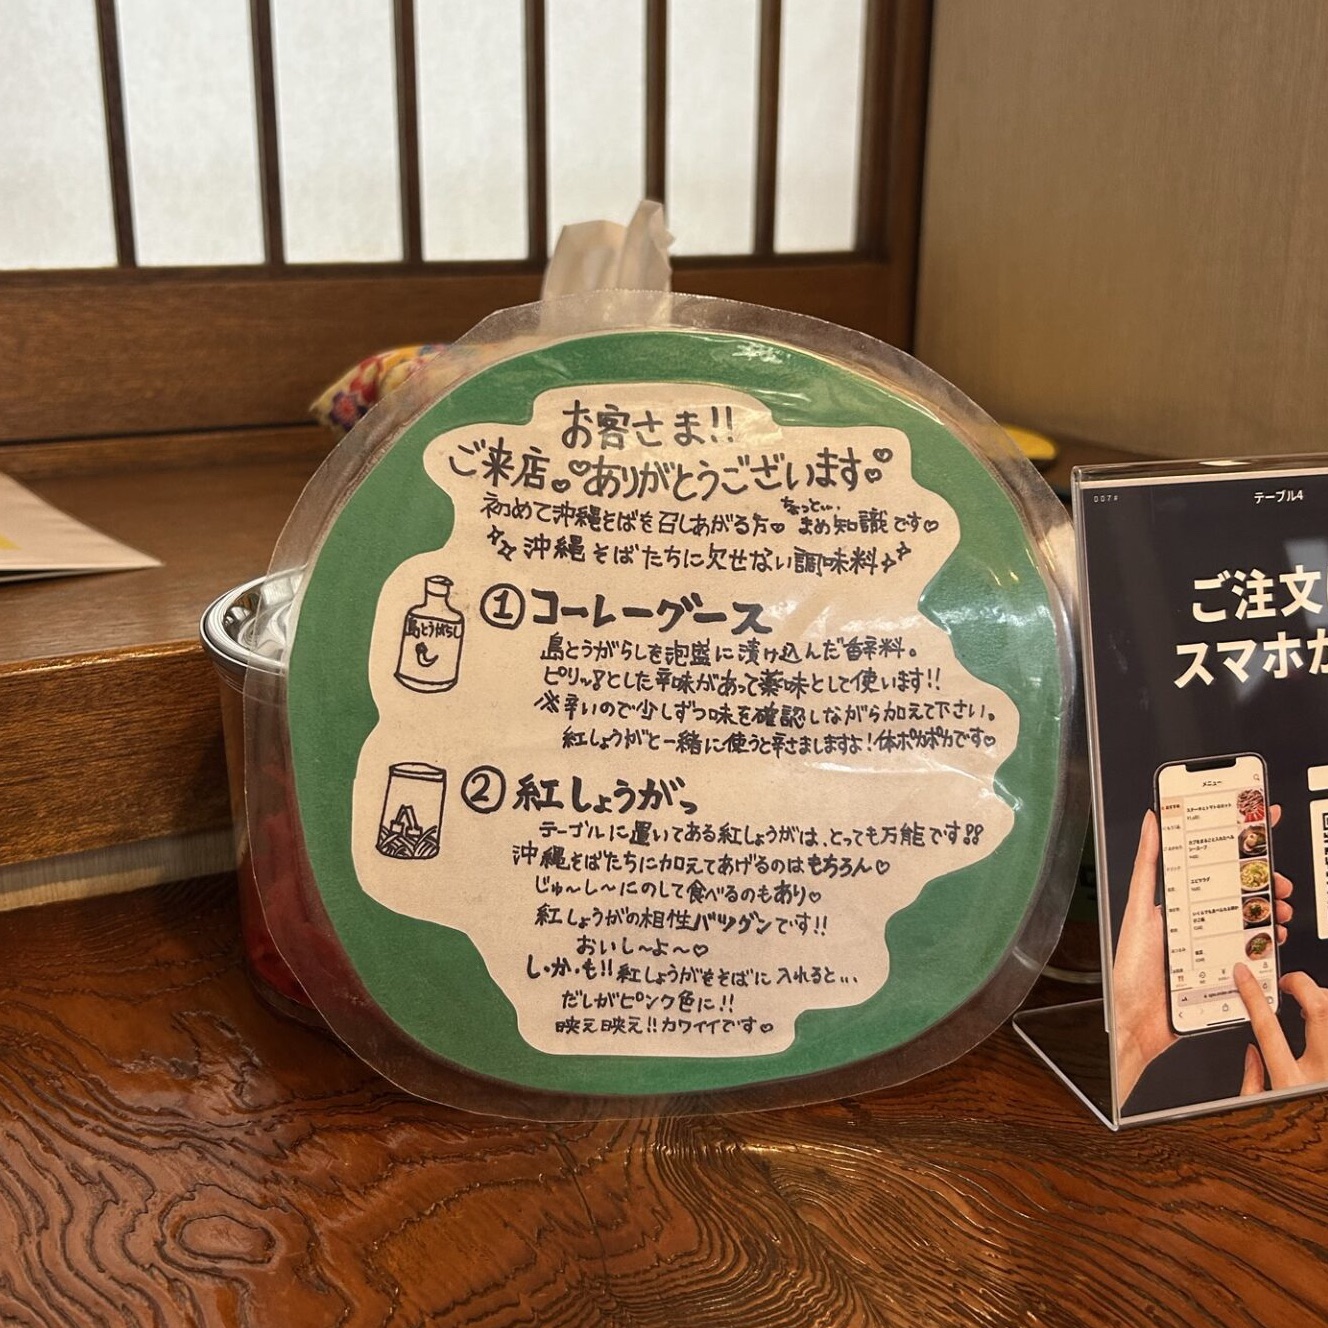 お客さま!!
ご来店♡ありがとうございます♡
ちょっと...
初めて沖縄そばを召しあがる方♡まめ知識です♡
沖縄そばたちに欠せない調味料
島とうがらし
①コーレーグース
島とうがらしを泡盛に漬け込んだ香辛料。
ピリッとした辛味があって薬味として使います!!
※辛いので少しずつ味を確認しながら加えて下さい。
紅しょうがと一緒に使うと辛さましますよ!体ポカポカです♡
②紅しょうがっ
テーブルに置いてある紅しょうがは、とっても万能です!!
沖縄そばたちに加えてあげるのはもちろん♡
じゅ~し~にのして食べるのもあり♡
紅しょうがの相性バツグンです!!
おいし~よ~♡
し・か・も!!紅しょうがをそばに入れると...
だしがピンク色に!!
映え映え!!カワイイです♡
テーブル4
ご注文
スマホか
メニュー